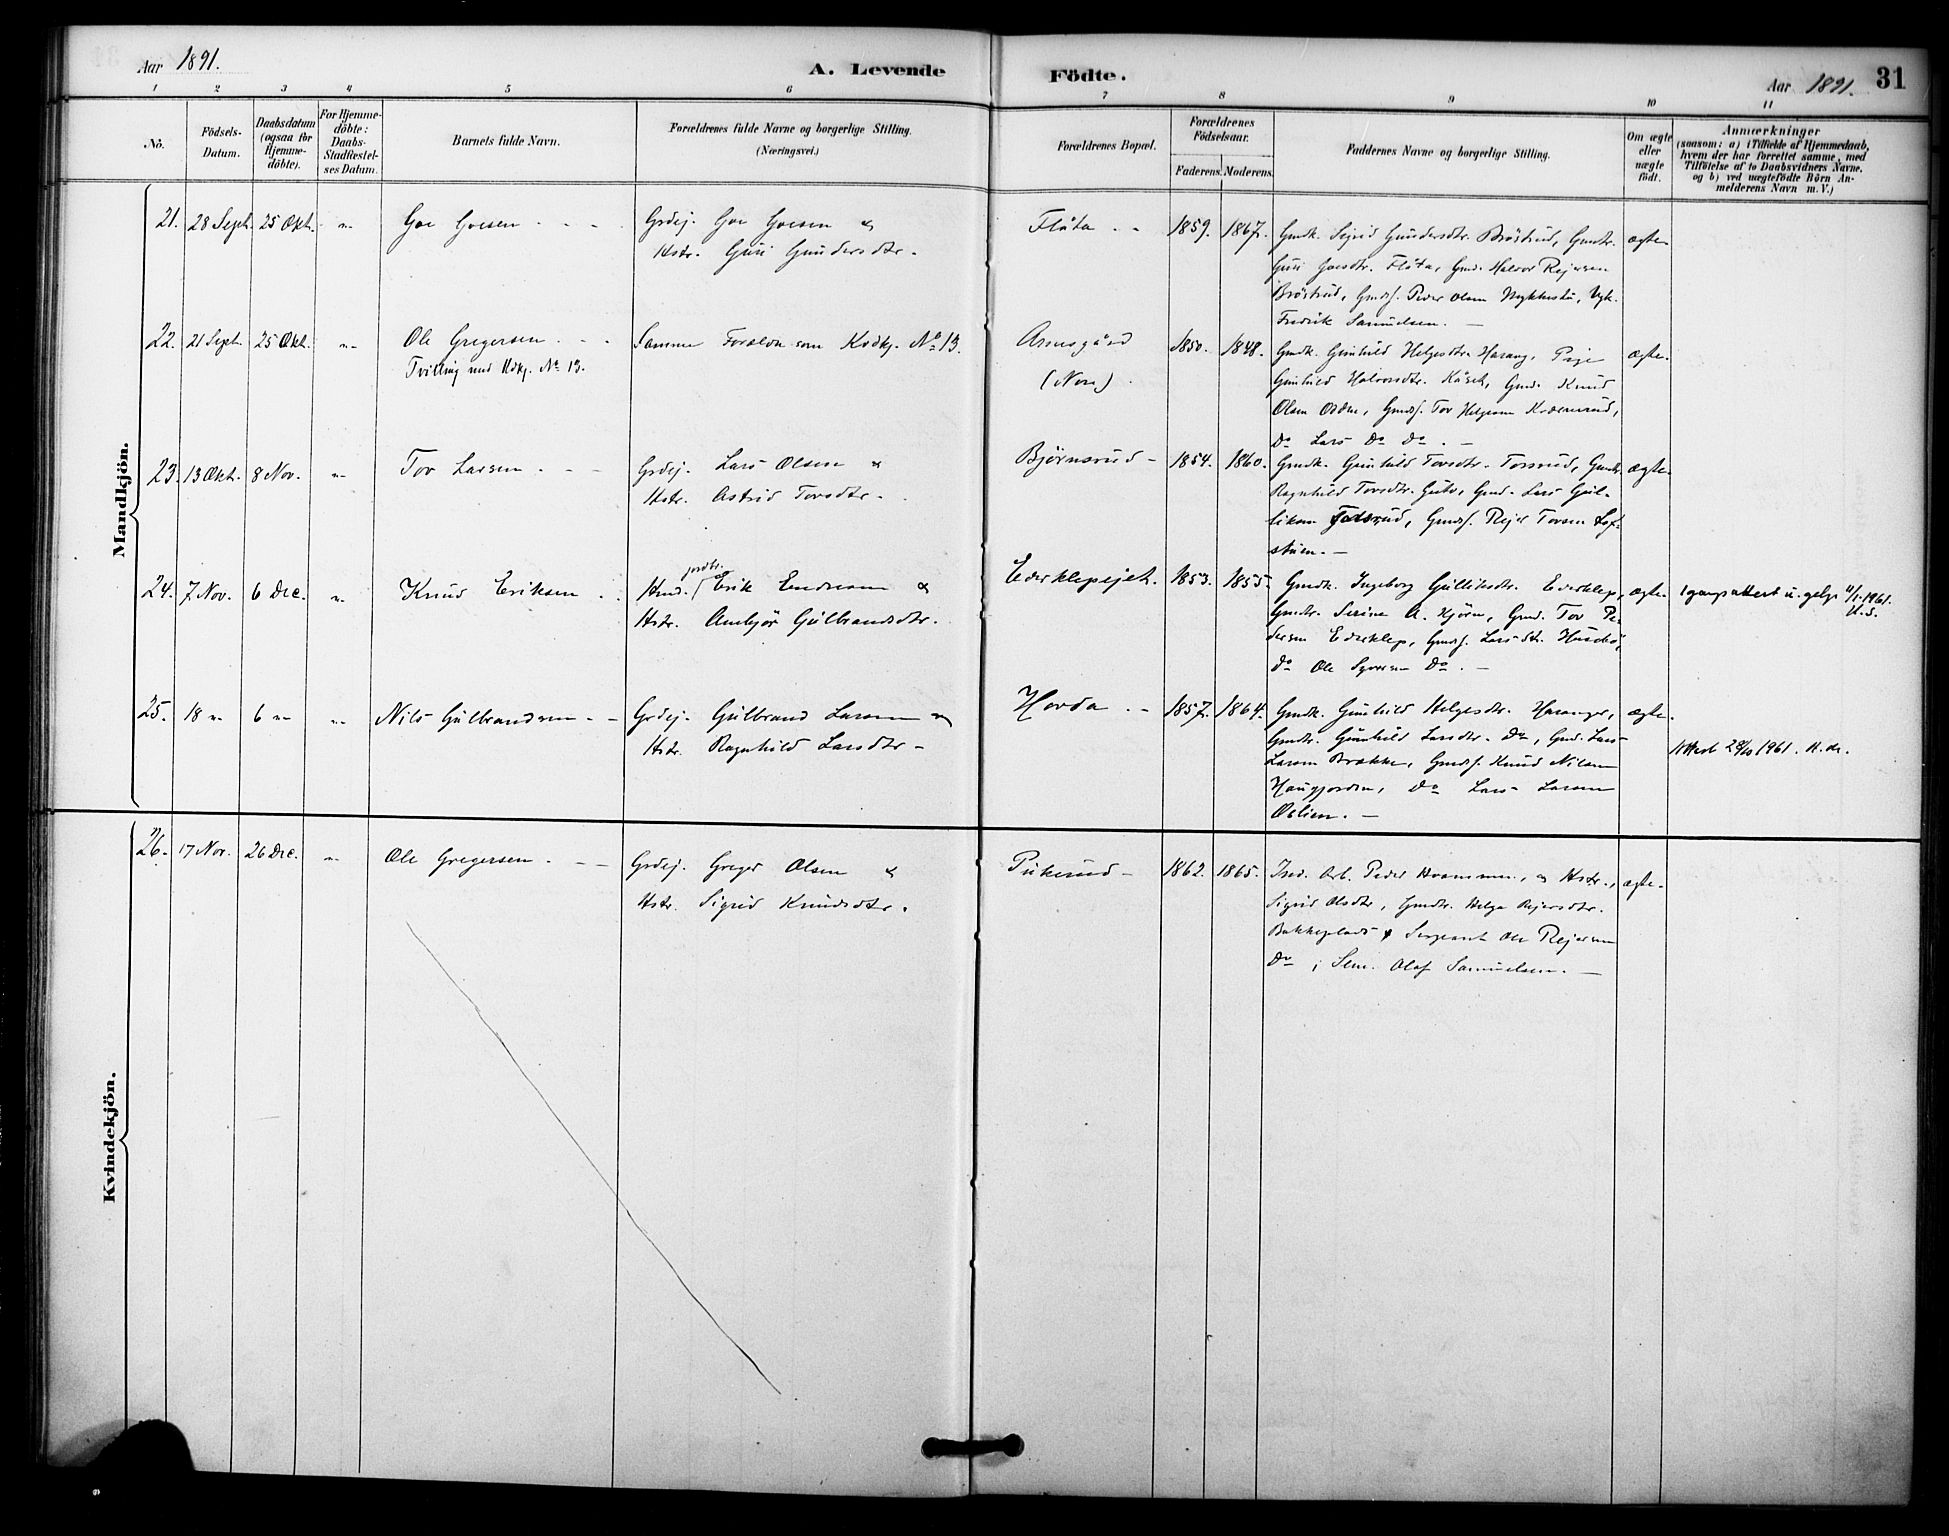 Aar 1891.
A. Levende Födte.
Aar 1891.
31
1 2 3 4 5 6 7 8 9 10 11
No.
Födsels-Datum.
Daabsdatum (ogsaa for Hjemme-döbte).
For Hjemme-döbte: Daabs-Stadfæstel-ses Datum.
Barnets fulde Navn.
Forældrenes fulde Navne og borgerlige Stilling.
(Næringsvei.)
Forældrenes Bopæl.
Forældrenes Födselsaar.
Faderens. Moderens.
Faddernes Navne og borgerlige Stilling.
Om ægte eller uægte födt.
Anmærkninger
(saasom: a) i Tilfælde af Hjemmedaab,
hvem der har forrettet samme, med
Tilföielse af to Daabsvidners Navne.
og b) ved uægtefödte Börn An-
melderens Navn m. V.)
Mandkjön.
21. 28 Sept. 25 Okt. -"- Goe Goesen Grdej. Goe Goesen &
Hstr. Guri Gundersdtr.
Flåta 1859. 1867. Gmdk. Sigrid Gundersdtr. Bröstrud, Gmdtr. ægte
Guri Goesdtr. Flåta, Gmd. Halvor Rejersen
Bröstrud, Gmds. Peder Olsen
Fredrik Samuelsen.
22. 21 Sept. 25 Okt. -"- Ole Gregersen
Tvilling med Kvdkj. No 13.
Samme Foræld. som Kvdkj. No 13.
Arnesgård
(Nore).
1850. 1848. Gmdk. Gunhild Helgesdtr. Pige ægte.
Gunhild Halvorsdtr. Gmd. Knud
Olsen Gmds. Tov Helgesen
Do Lars Do Do.
23. 13 Okt. 8 Nov. -"- Tov Larsen Grdej. Lars Olsen &
Hstr. Astrid Torsdtr.
Bjørnsrud 1854. 1860. Gmdk. Gunhild Torsdtr. Torsrud, Gmdtr. ægte.
Ragnhild Torsdtr. Gmd. Lars Gul-
liksen Gmds. Rejer Torsen Lof-
stuen.
24. 7 Nov. 6 Dec. -"- Knud Eriksen Hmd. jordbr. Erik Endresen &
Hstr. Ambjør Gulbrandsdtr.
Ederklepejet. 1853. 1855. Gmdk. Ingeborg Gulliksdtr. Ederklep, ægte.
Gmdtr. Serine A. Hjörn, Gmd. Tov Pe-
dersen Ederklep, Gmds. Lars
Do Ole Do.
25. 18 -"- 6 -"- -"- Nils Gulbrandsen Grdej. Gulbrand Larsen &
Hstr. Ragnhild Larsdtr.
Hovda 1857. 1864. Gmdk. Gunhild Helgesdtr. ægte.
Gmdtr. Gunhild Larsdtr. Do, Gmd. Lars
Larsen Brække, Gmds. Knud Nilsen
Haugjorden, Do Lars Larsen
Attest 1961.
Kvindekjön.
26. 17 Nov. 26 Dec. -"- Ole Gregersen Grdej. Greger Olsen &
Hstr. Sigrid Knudsdtr.
Pukerud 1862. 1865. Ind. Arb. Peder & Hstr., ægte.
Sigrid Olsdtr, Gmdtr. Helga Rejersdtr.
Bakkeplads & Sergeant Ole Rejersen
Do; Sem. Olaf Samuelsen.